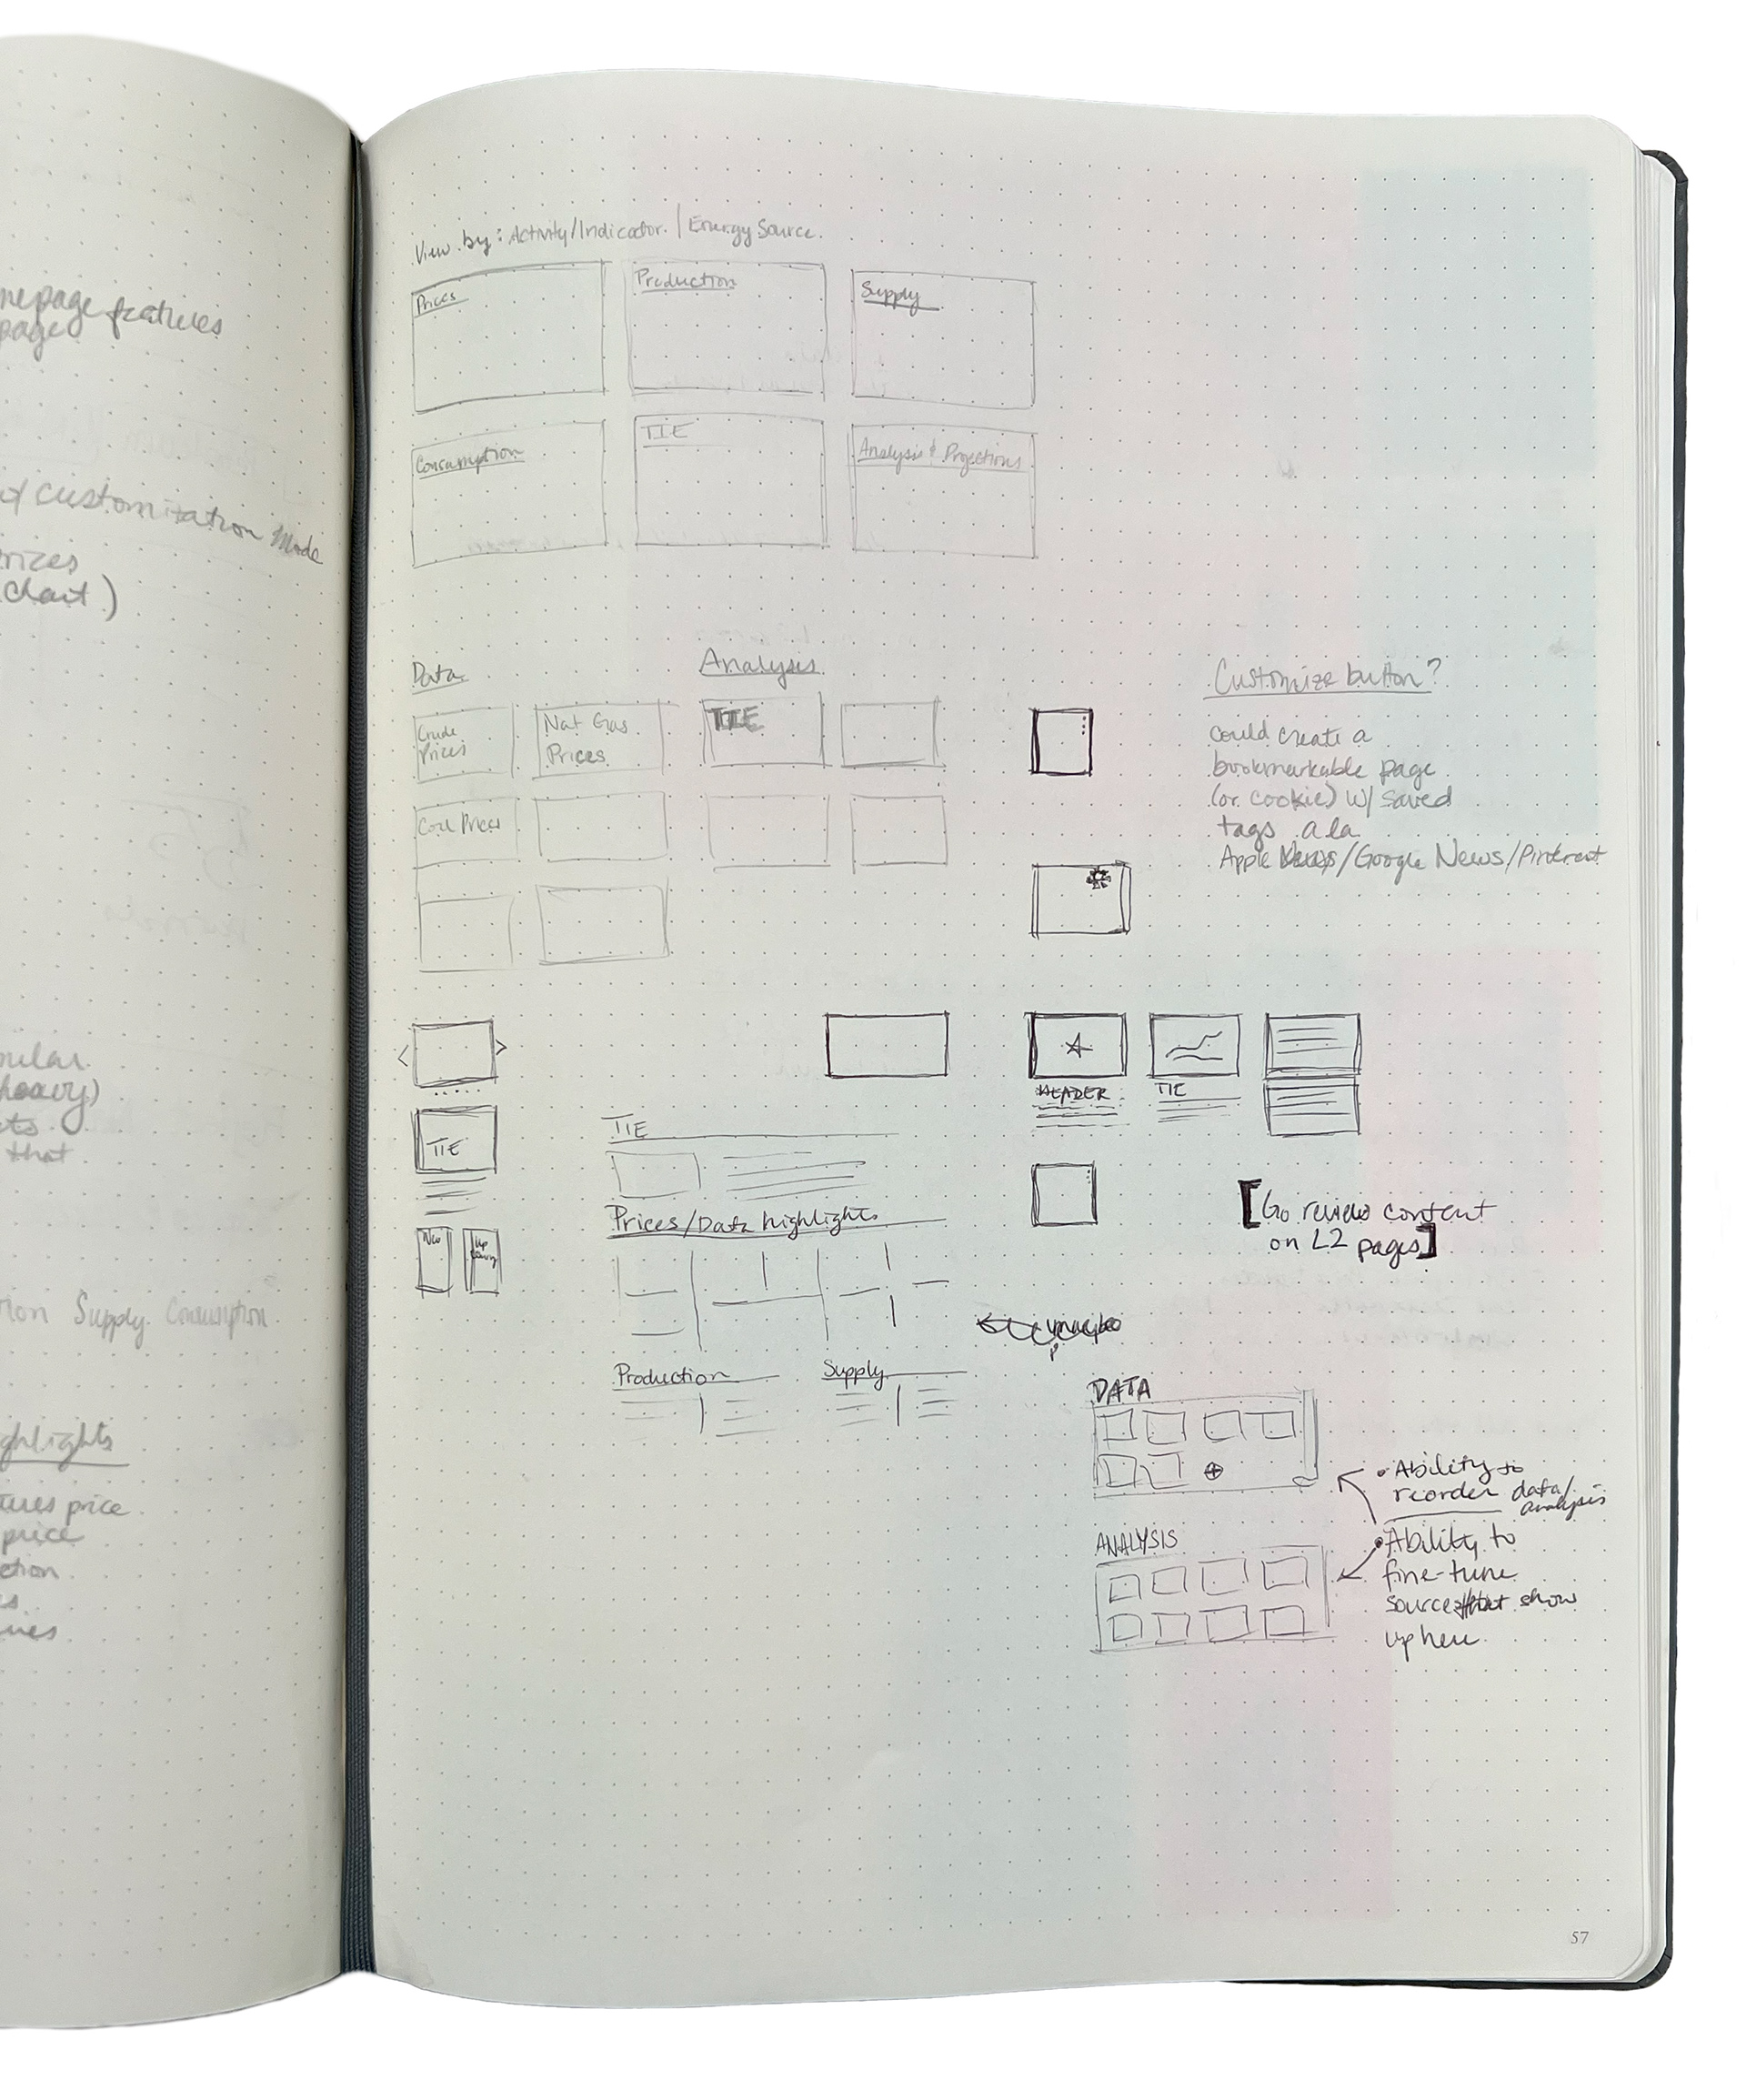 features
page
Customization Mode
Chart)
heavy)
that
Supply Consumption
price
price
View by: Activity/Indicator | Energy Source
Prices
Production
Supply
Consumption
TIE
Analysis & Projections
Data
Analysis
Crude
Prices
Nat Gas
Prices
TIE
Coal Prices
Customize button?
Could create a
bookmarkable page
(or cookie) w/ saved
tags a la
Apple News/Google News/Pinterest
TIE
TIE
Prices/Data highlights
Production
Supply
HEADER
TIE
[Go review content
on L2 pages]
DATA
ANALYSIS
• Ability to
reorder data/
analysis
• Ability to
fine-tune
sources that show
up here
57